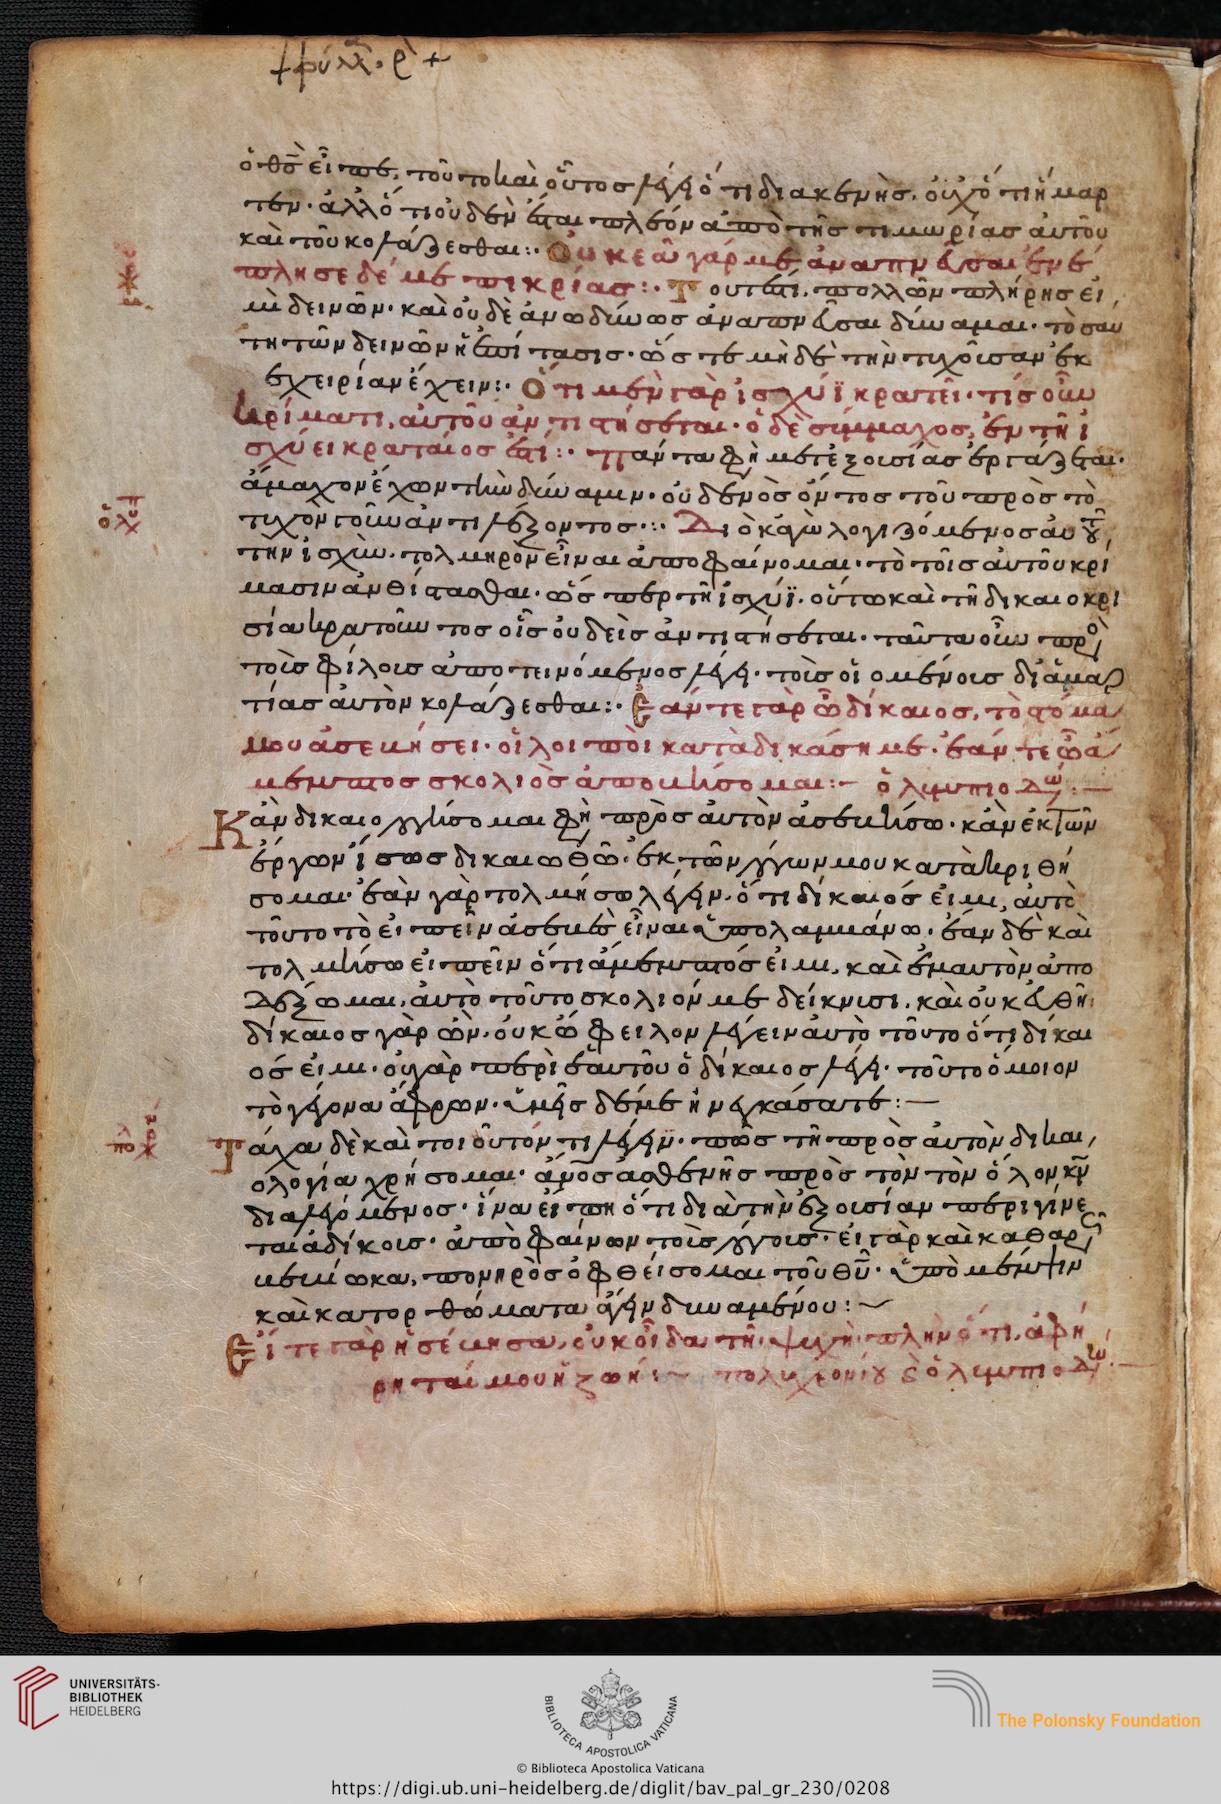 + φύλλ. ρ +
ὁ θς εἶπε. τοῦτο καὶ οὗτος λέγει ὅτι διακενῆς. οὐχ ὅτι ἥμαρ
τεν. ἀλλ ὅτι οὐδὲν ἔσται πλέον ἀπὸ τῆς τιμωρίας αὐτοῦ
καὶ τοῦ κολάζεσθαι:· Οὐκ ἐᾷ γάρ με ἀναπνεῦσαι ἐνέ
πλησε δέ με πικρίας:· Τουτέστι. πολλῶν πλήρης εἰ
μὶ δεινῶν. καὶ οὐδὲ ἀνωδύνως ἀναπνεῦσαι δύναμαι. τοσαύ
τη τῶν δεινῶν ἡ ἐπίτασις. ὥς τε μὴ δὲ τὴν τυχοῦσαν ἐκ
εχειρίαν ἔχειν:· Ὅτι μὲν γὰρ ἰσχύϊ κρατεῖ. τίς οὖν
κρίματι, αὐτοῦ ἀντιστήσεται. ὁ δὲ σύμμαχος, ἐν τῇ ἰ
σχύει κραταιός ἐστί:· Πάντα φη μετ ἐξουσίας ἐργάζεται.
ἄμαχον ἔχων τὴν δύναμιν. οὐδενὸς ὄντος τοῦ πρὸς τὸ
τυχὸν γοῦν ἀντιλέξοντος:· Διὸ κἀγὼ λογιζόμενος αὐτοῦ
τὴν ἰσχὺν. τολμηρὸν εἶναι ἀποφαίνομαι. τὸ τοῖς αὐτοῦ κρί
μασιν ἀνθίστασθαι. ὥς περ τῇ ἰσχύϊ. οὕτω καὶ τῇ δικαιοκρι
σία κρατοῦντος οἷς οὐδεὶς ἀντιστήσεται. ταῦτα οὖν προς
τοῖς φίλοις ἀποτεινόμενος λέγει. τοῖς οἰομένοις δἰ ἁμαρ
τίας αὐτὸν κολάζεσθαι:· Ἐάν τε γὰρ ὦ δίκαιος, τὸ στόμα
μου ἀσεβήσει. οἵλοιποι καταδικάσημε. ἐάν τε ὦ ἄ
μεμπτος σκολιὸς ἀποβήσομαι:– ὀλυμπιοδω:—
Κἂν δικαιολογήσομαι φη πρὸς αὐτὸν ἀσεβήσω. κἂν ἐκ τῶν
ἔργων ἴσως δικαιωθῶ. ἐκ τῶν λόγων μου κατακριθή
σομαι. ἐὰν γὰρ τολμήσω λέγειν. ὅτι δίκαιός εἰμι, αὐτὸ
τοῦτο τὸ εἰπεῖν ἀσεβὲς εἶναι ὑπολαμβάνω. ἐὰν δὲ καὶ
τολμήσω εἰπεῖν ὅτι ἄμεμπτός εἰμι, καὶ ἐμαυτὸν ἀπο
δέξωμαι, αὐτὸ τοῦτο σκολιόν με δείκνυσι. καὶ οὐκ εὐθῆ.
δίκαιος γὰρ ὢν. οὐκ ὤφειλον λέγειν αὐτὸ τοῦτο ὅτι δίκαι
ός εἰμι. οὐ γὰρ περὶ ἑαυτοῦ ὁ δίκαιος λέγει. τοῦτο ὅμοιον
τὸ γέγονα ἄφρων. ὑμεῖς δέ με ἠναγκάσατε:—
Τάχα δὲ καὶ τοιοῦτόν τι λέγειν. πῶς τῆ πρὸς αὐτὸν δικαι
ολογία χρήσομαι. ἄνος ἀσθενὴς πρὸς τὸν τὸν ὅλον κν
διαλεγόμενος. ἵνα εἴπη ὅτι διὰ τὴν ἐξουσίαν περιγίνε
ται ἀδίκοις. ἀποφαίνων τοῖς λόγοις. εἰ γὰρ καὶ καθαρῶς
βεβίωκα, πονηρὸς ὀφθείσομαι τοῦ θυ. ὑπὸ μέμψιν
καὶ κατορθώματα ἄγειν δυναμένου:~
Εἴτε γὰρ ἠσέβησα, οὐκ οἶδα τῆ ψυχῆ. πλὴν ὅτι, ἀφή
ρηταί μου ἡ ζωή:~ πολυχρονίου κ ὀλυμπιοδω:—
πολ χρο
UNIVERSITÄTS-
BIBLIOTHEK
HEIDELBERG
BIBLIOTECA APOSTOLICA VATICANA
The Polonsky Foundation
© Biblioteca Apostolica Vaticana
https://digi.ub.uni-heidelberg.de/diglit/bav_pal_gr_230/0208